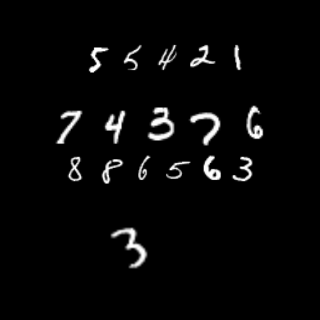 5 5 4 2 1
7 4 3 7 6
8 8 6 5 6 3
3